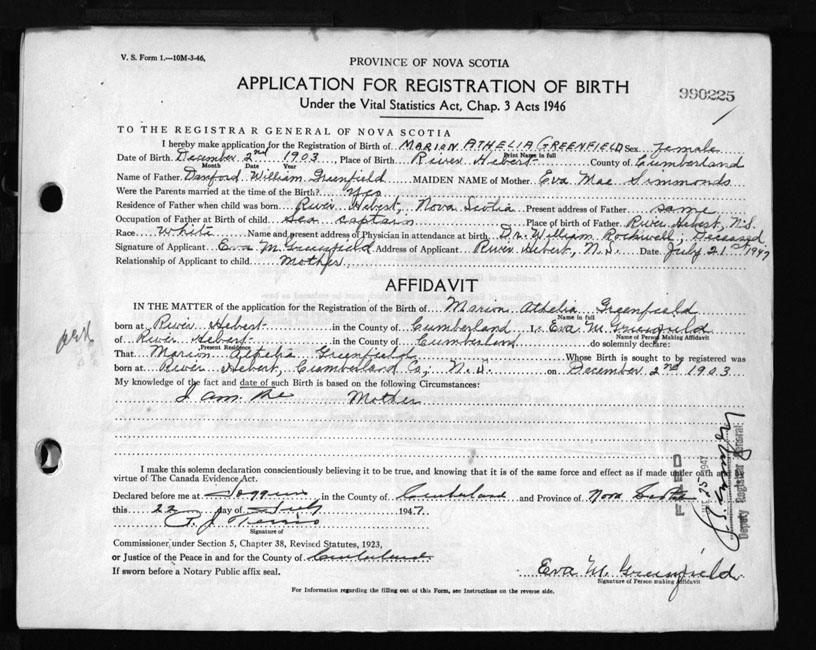 V. S. Form 1.—10M-3-46.
PROVINCE OF NOVA SCOTIA
APPLICATION FOR REGISTRATION OF BIRTH
990225
Under the Vital Statistics Act, Chap. 3 Acts 1946
TO THE REGISTRAR GENERAL OF NOVA SCOTIA
I hereby make application for the Registration of Birth of MARION ATHELIA GREENFIELD Sex female
Print Name in full
Date of Birth December 2nd 1903, Place of Birth River Hebert County of Cumberland
Month Date Year
Name of Father William Greenfield MAIDEN NAME of Mother Eva Mae Simmonds
Were the Parents married at the time of the Birth? Yes
Residence of Father when child was born River Hebert, Nova Scotia Present address of Father same
Occupation of Father at Birth of child Sea captain Place of birth of Father River Hebert, N.S.
Race White Name and present address of Physician in attendance at birth Dr. William Rockwell, Deceased
Signature of Applicant Eva M. Greenfield Address of Applicant River Hebert, N.S. Date July 21st 1947
Relationship of Applicant to child Mother
AFFIDAVIT
IN THE MATTER of the application for the Registration of the Birth of Marion Athelia Greenfield
Name in full
born at River Hebert in the County of Cumberland, I, Eva M. Greenfield
Name of Person Making Affidavit
of River Hebert in the County of Cumberland do solemnly declare:
Present Residence
That Marion Athelia Greenfield Whose Birth is sought to be registered was
born at River Hebert, Cumberland Co, N.S. on December 2nd 1903
My knowledge of the fact and date of such Birth is based on the following Circumstances:
I am the Mother
I make this solemn declaration conscientiously believing it to be true, and knowing that it is of the same force and effect as if made under oath and by
virtue of The Canada Evidence Act.
Declared before me at Joggins in the County of Cumberland and Province of Nova Scotia
this 22 day of July 1947.
Signature of
Commissioner under Section 5, Chapter 38, Revised Statutes, 1923,
or Justice of the Peace in and for the County of Cumberland
If sworn before a Notary Public affix seal.
Eva M. Greenfield
Signature of Person making Affidavit
For Information regarding the filling out of this Form, see Instructions on the reverse side.
FILED
25 1947
Deputy Registrar General